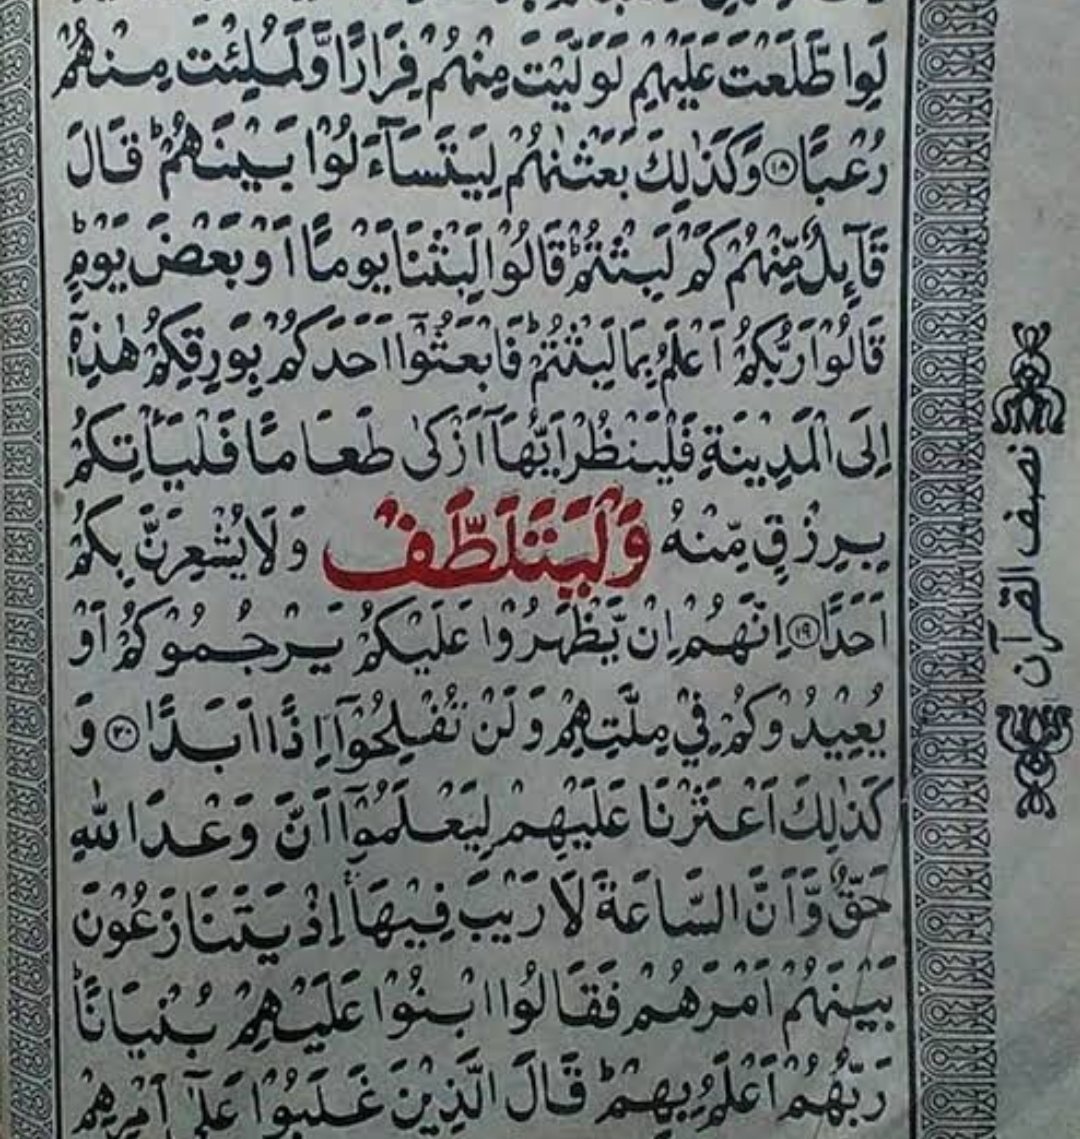 لَوِ اطَّلَعْتَ عَلَيْهِمْ لَوَلَّيْتَ مِنْهُمْ فِرَارًا وَّلَمُلِئْتَ مِنْهُمْ
رُعْبًا ۝١٨ وَكَذٰلِكَ بَعَثْنٰهُمْ لِيَتَسَآءَلُوْا بَيْنَهُمْ ؕ قَالَ
قَآىِٕلٌ مِّنْهُمْ كَمْ لَبِثْتُمْ ؕ قَالُوْا لَبِثْنَا يَوْمًا اَوْ بَعْضَ يَوْمٍ ؕ
قَالُوْا رَبُّكُمْ اَعْلَمُ بِمَا لَبِثْتُمْ ؕ فَابْعَثُوْۤا اَحَدَكُمْ بِوَرِقِكُمْ هٰذِهٖۤ
اِلَى الْمَدِيْنَةِ فَلْيَنْظُرْ اَيُّهَاۤ اَزْكٰى طَعَامًا فَلْيَاْتِكُمْ
بِرِزْقٍ مِّنْهُ وَلْيَتَلَطَّفْ وَلَا يُشْعِرَنَّ بِكُمْ
اَحَدًا ۝١٩ اِنَّهُمْ اِنْ يَّظْهَرُوْا عَلَيْكُمْ يَرْجُمُوْكُمْ اَوْ
يُعِيْدُوْكُمْ فِيْ مِلَّتِهِمْ وَلَنْ تُفْلِحُوْۤا اِذًا اَبَدًا ۝٢٠ وَ
كَذٰلِكَ اَعْثَرْنَا عَلَيْهِمْ لِيَعْلَمُوْۤا اَنَّ وَعْدَ اللّٰهِ
حَقٌّ وَّاَنَّ السَّاعَةَ لَا رَيْبَ فِيْهَا ۚ اِذْ يَتَنَازَعُوْنَ
بَيْنَهُمْ اَمْرَهُمْ فَقَالُوا ابْنُوْا عَلَيْهِمْ بُنْيَانًا ؕ
رَبُّهُمْ اَعْلَمُ بِهِمْ ؕ قَالَ الَّذِيْنَ غَلَبُوْا عَلٰۤى اَمْرِهِمْ
نصف القرآن